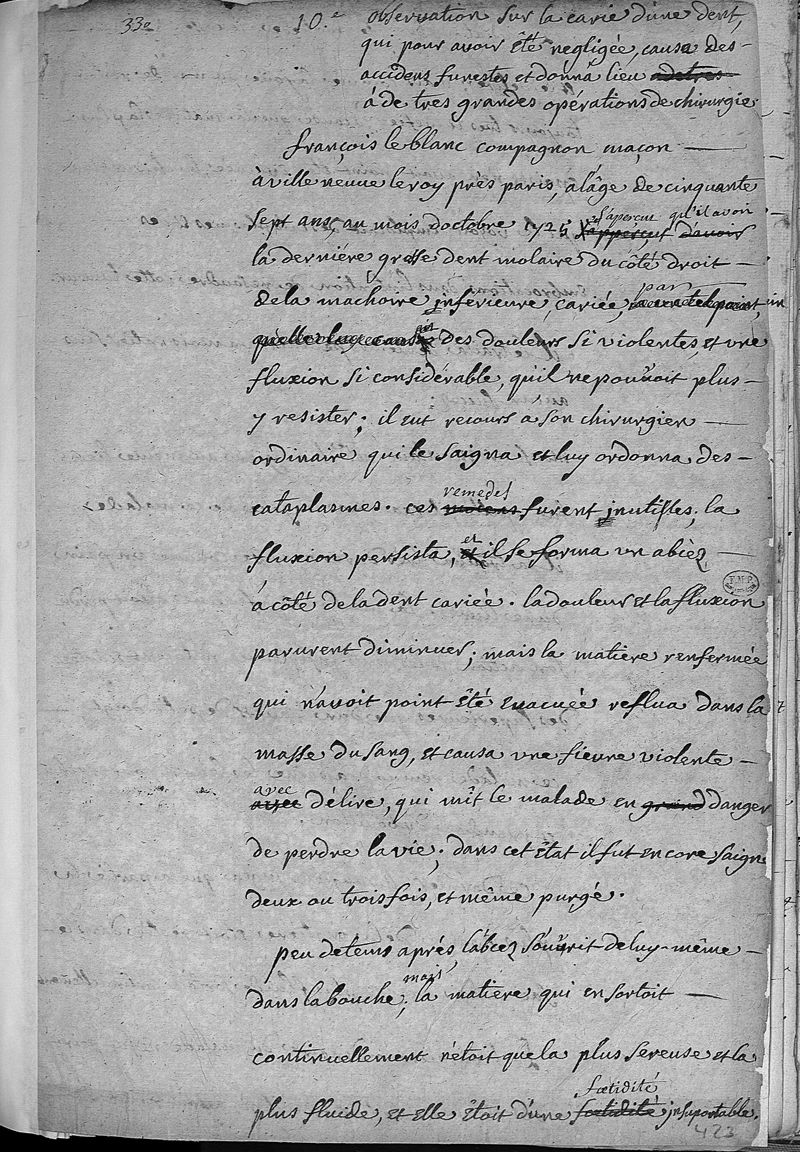 330 10.e observation sur la carie d'une dent,
qui pour avoir êté negligée, causa des
accidens funestes et donna lieu adetres
á de tres grandes opérations de chirurgie
françois le blanc compagnon maçon
à ville neuve le roy prés paris, à lâge de cinquante
s'aperçut qu'il avoit
sept ans, au mois doctobre 1725 s'appérçut d'avoir
la derniére grosse dent molaire du côté droit
par
dela machoire inferieure, cariée, a un tel point,
qu'elle luy causa des douleurs si violentes, et une
fluxion si considérable, qu'il ne pouvoit plus
y resister; il eut recours a son chirurgien
ordinaire qui le saigna et luy ordonna des
remedes
cataplasmes. ces moiens furent inutilles; la
et
fluxion persista, et il se forma un abcèz
á côté de la dent cariée. la douleur et la fluxion
parurent diminuer; mais la matiere renfermée
qui n'avoit point êté évacuée reflua dans la
masse du sang, et causa une fievre violente
avec
avec délire, qui mit le malade en grand danger
de perdre la vie; dans cet êtat il fut encore saigné
deux ou trois fois, et même purgé.
peu detems aprés, l'abcèz s'ouvrit de luy-même
mais
dans la bouche; la matiere qui en sortoit
continuellement n'étoit que la plus sereuse et la
fœtidité
plus fluide, et elle êtoit d'une fœtidité insuportable.
423